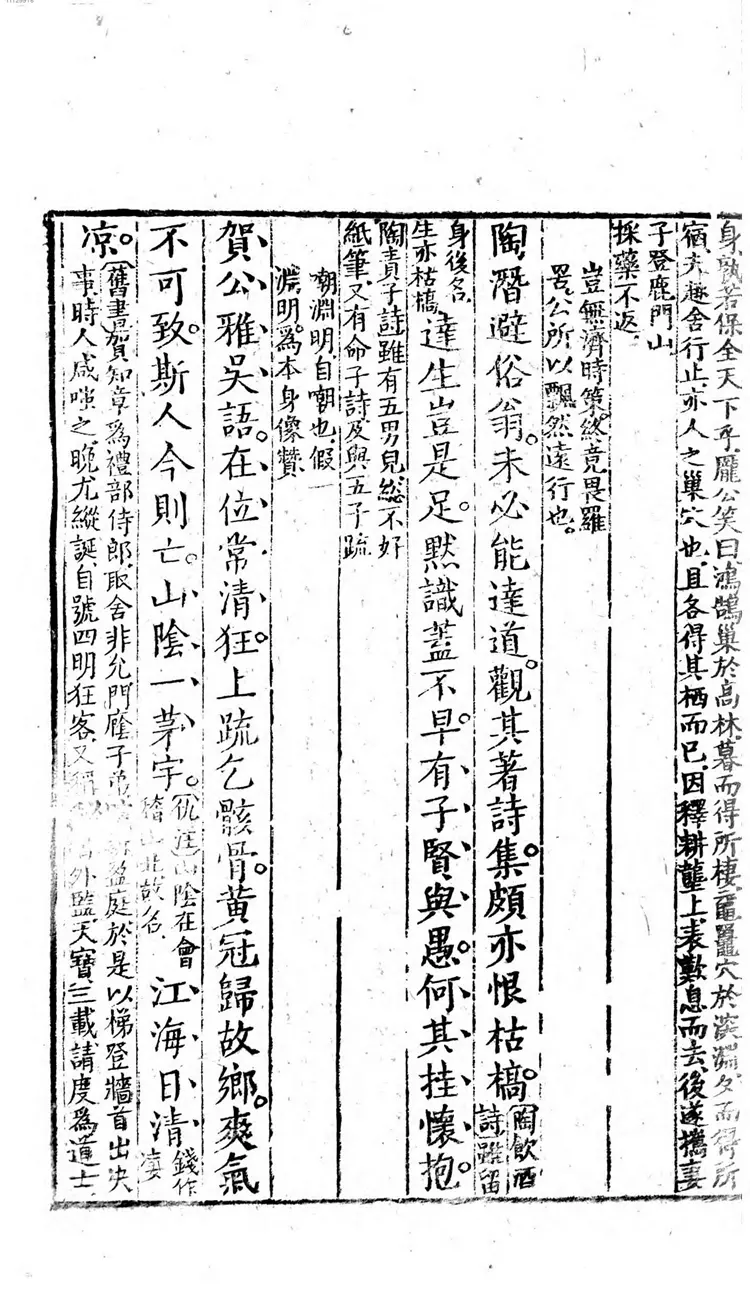 身孰若保全天下乎龐公笑曰鴻鵠巢於高林暮而得所棲黿鼉穴於深淵夕而得所
宿夫趣舍行止亦人之巢穴也且各得其栖而已因釋耕壟上表歎息而去後遂攜妻
子登鹿門山
採藥不返
豈無濟時策。終竟畏羅
罟。公所以飄然遠行也。
陶潛避俗翁。未必能達道。觀其著詩集。頗亦恨枯槁。
陶飲酒
詩雖留
身後名
生亦枯槁
達生豈是足。默識蓋不早。有子賢與愚。何其挂懷抱。
陶責子詩雖有五男兒總不好
紙筆又有命子詩及與五子疏
嘲淵明自嘲也假
淵明為本身像贊
賀公雅吳語。在位常清狂。上疏乞骸骨。黃冠歸故鄉。爽氣
不可致。斯人今則亡。山陰一茅宇。
仇注山陰在會
稽山北故名
江海日清
錢作
凄
凉。
舊書賀知章為禮部侍郎取舍非允門廕子弟 盈庭於是以梯登牆首出決
事時人咸嗤之晚尤縱誕自號四明狂客又稱 外監天寶三載請度為道士